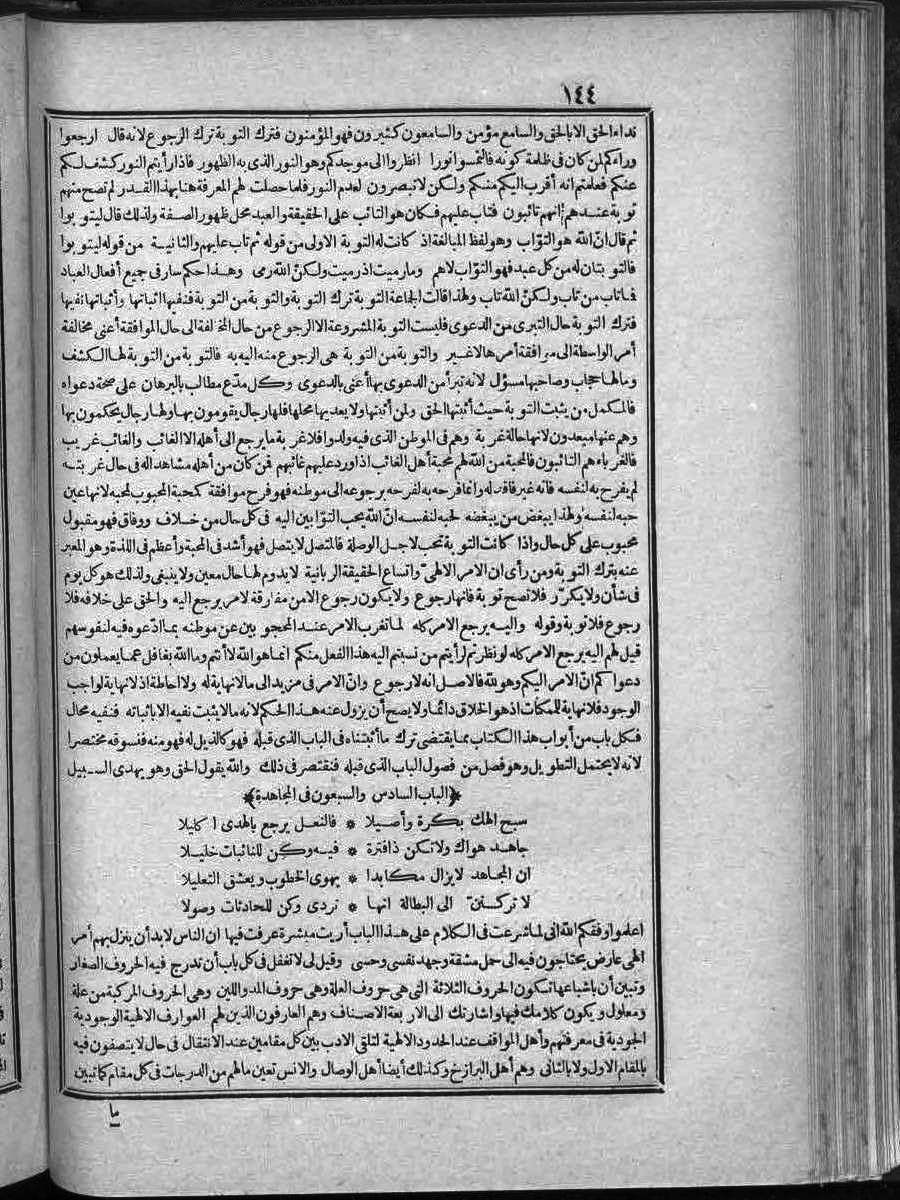 ١٤٤
نداء الحق الا بالحق والسامع مؤمن والسامعون كثيرون فهو المؤمنون فترك التوبة ترك الرجوع لانه قال ارجعوا
وراءكم لمن كان فى ظلمة كونه فالتمسوا نورا انظروا الى موجدكم وهو النور الذى به الظهور فاذا رأيتم النور كشف لكم
عنكم فعلمتم انه أقرب اليكم منكم ولكن لا تبصرون لعدم النور فلما حصلت لهم المعرفة هنا بهذا القدر لم تصح منهم
توبة عندهم انهم تائبون فتاب عليهم فكان هو التائب على الحقيقة والعبد محل ظهور الصفة ولذلك قال ليتوبوا
ثم قال انّ الله هو التوّاب وهو لفظ المبالغة اذ كانت له التوبة الاولى من قوله ثم تاب عليهم والثانية من قوله ليتوبوا
فالتوبتان له من كل عبد فهو التوّاب لا هم وما رميت اذ رميت ولكنّ الله رمى وهذا حكم سار فى جميع أفعال العباد
فما تاب من تاب ولكنّ الله تاب ولهذا قالت الجماعة التوبة ترك التوبة والتوبة من التوبة فنفيها اثباتها وأثباتها نفيها
فترك التوبة حال التبرى من الدعوى فليست التوبة المشروعة الا الرجوع من حال المخالفة الى حال الموافقة أعنى مخالفة
أمر الواسطة الى موافقة أمرها لا غير والتوبة من التوبة هى الرجوع منه اليه به فالتوبة من التوبة لها الكشف
وما لها حجاب وصاحبها مسؤل لانه تبرأ من الدعوى بها أعنى بالدعوى وكل مدّع مطالب بالبرهان على صحة دعواه
فالمكمل من يثبت التوبة حيث أثبتها الحق ولمن أثبتها ولا يعديها محلها فلها رجال يقومون بها ولها رجال يحكمون بها
وهم عنها مبعدون لانها حالة غربة وهم فى الموطن الذى فيه ولدوا فلا غربة ما يرجع الى أهله الا الغائب والغائب غريب
فالغرباء هم التائبون فالمحبة من الله لهم محبة أهل الغائب اذا ورد عليهم غائبهم فمن كان من أهله مشاهدا له فى حال غربته
لم يفرح به لنفسه فانه غير فاقد له وانما فرحه به لفرحه برجوعه الى موطنه فهو فرح موافقة كمحبة المحبوب لمحبه لانها عين
حبه لنفسه ولهذا يبغض من يبغضه لحبه لنفسه انّ الله يحب التوّابين اليه فى كل حال من خلاف ووفاق فهو مقبول
محبوب على كل حال واذا كانت التوبة تحب لاجل الوصلة فالمتصل لا يتصل فهو أشد فى المحبة وأعظم فى اللذة وهو المعبر
عنه بترك التوبة ومن رأى ان الامر الالهىّ واتساع الحقيقة الربانية لا يدوم لها حال معين ولا ينبغى ولذلك هو كل يوم
فى شأن ولا يكرّر فلا تصح توبة فانها رجوع ولا يكون رجوع الا من مفارقة لامر يرجع اليه والحق على خلافه فلا
رجوع فلا توبة وقوله واليه يرجع الامر كله لما تغرب الامر عند المحجوبين عن موطنه بما ادّعوه فيه لنفوسهم
قيل لهم اليه يرجع الامر كله لو نظرتم لرأيتم من نسبتم اليه هذا الفعل منكم انما هو الله لا أنتم وما الله بغافل عما يعملون من
دعواكم انّ الامر اليكم وهو لله فالاصل انه لا رجوع وانّ الامر فى مزيد الى ما لا نهاية له ولا احاطة اذ لا نهاية لواجب
الوجود فلا نهاية للممكنات اذ هو الخلاق دائما ولا يصح أن يزول عنه هذا الحكم لانه ما لا يثبت نفيه الا باثباته فنفيه محال
فكل باب من أبواب هذا الكتاب مما يقتضى ترك ما أثبتناه فى الباب الذى قبله فهو كالذيل له فهو منه فنسوقه مختصرا
لانه لا يحتمل التطويل وهو فصل من فصول الباب الذى قبله فنقتصر فى ذلك والله يقول الحق وهو يهدى السبيل
﴿الباب السادس والسبعون فى المجاهدة﴾
سبح الهك بكرة وأصيلا * فالنعل يرجع بالهدى اكليلا
جاهد هواك ولا تكن ذا فترة * فيه وكن للنائبات خليلا
ان المجاهد لا يزال مكابدا * يهوى الخطوب ويعشق التعليلا
لا تركننّ الى البطالة انها * تردى وكن للحادثات وصولا
اعلموا وفقكم الله انى لما شرعت فى الكلام على هذا الباب أريت مبشرة عرفت فيها ان الناس لا بد أن ينزل بهم أمر
الهى عارض يحتاجون فيه الى حمل مشقة وجهد نفسى وحسى وقيل لى لا تغفل فى كل باب أن تدرج فيه الحروف الصغار
وتبين أن باشباعها تكون الحروف الثلاثة التى هى حروف العلة وهى حروف المد واللين وهى الحروف المركبة من علة
ومعلول ويكون كلامك فيها واشارتك الى الاربعة الاصناف وهم العارفون الذين لهم العوارف الالهية الوجودية
الجودية فى معرفتهم وأهل المواقف عند الحدود الالهية لتلقى الادب بين كل مقامين عند الانتقال فى حال لا يتصفون فيه
بالمقام الاول ولا بالثانى وهم أهل البرازخ وكذلك أيضا أهل الوصال والانس تعين ما لهم من الدرجات فى كل مقام كما تبين
ما